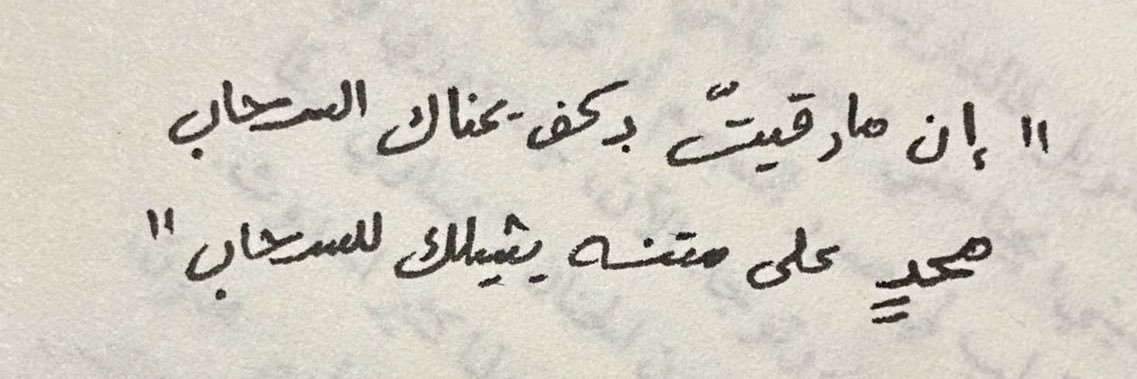 " إن ما رقيتّ بكف يمناك السحاب
محدٍ على متنه يشيلك للسحاب "